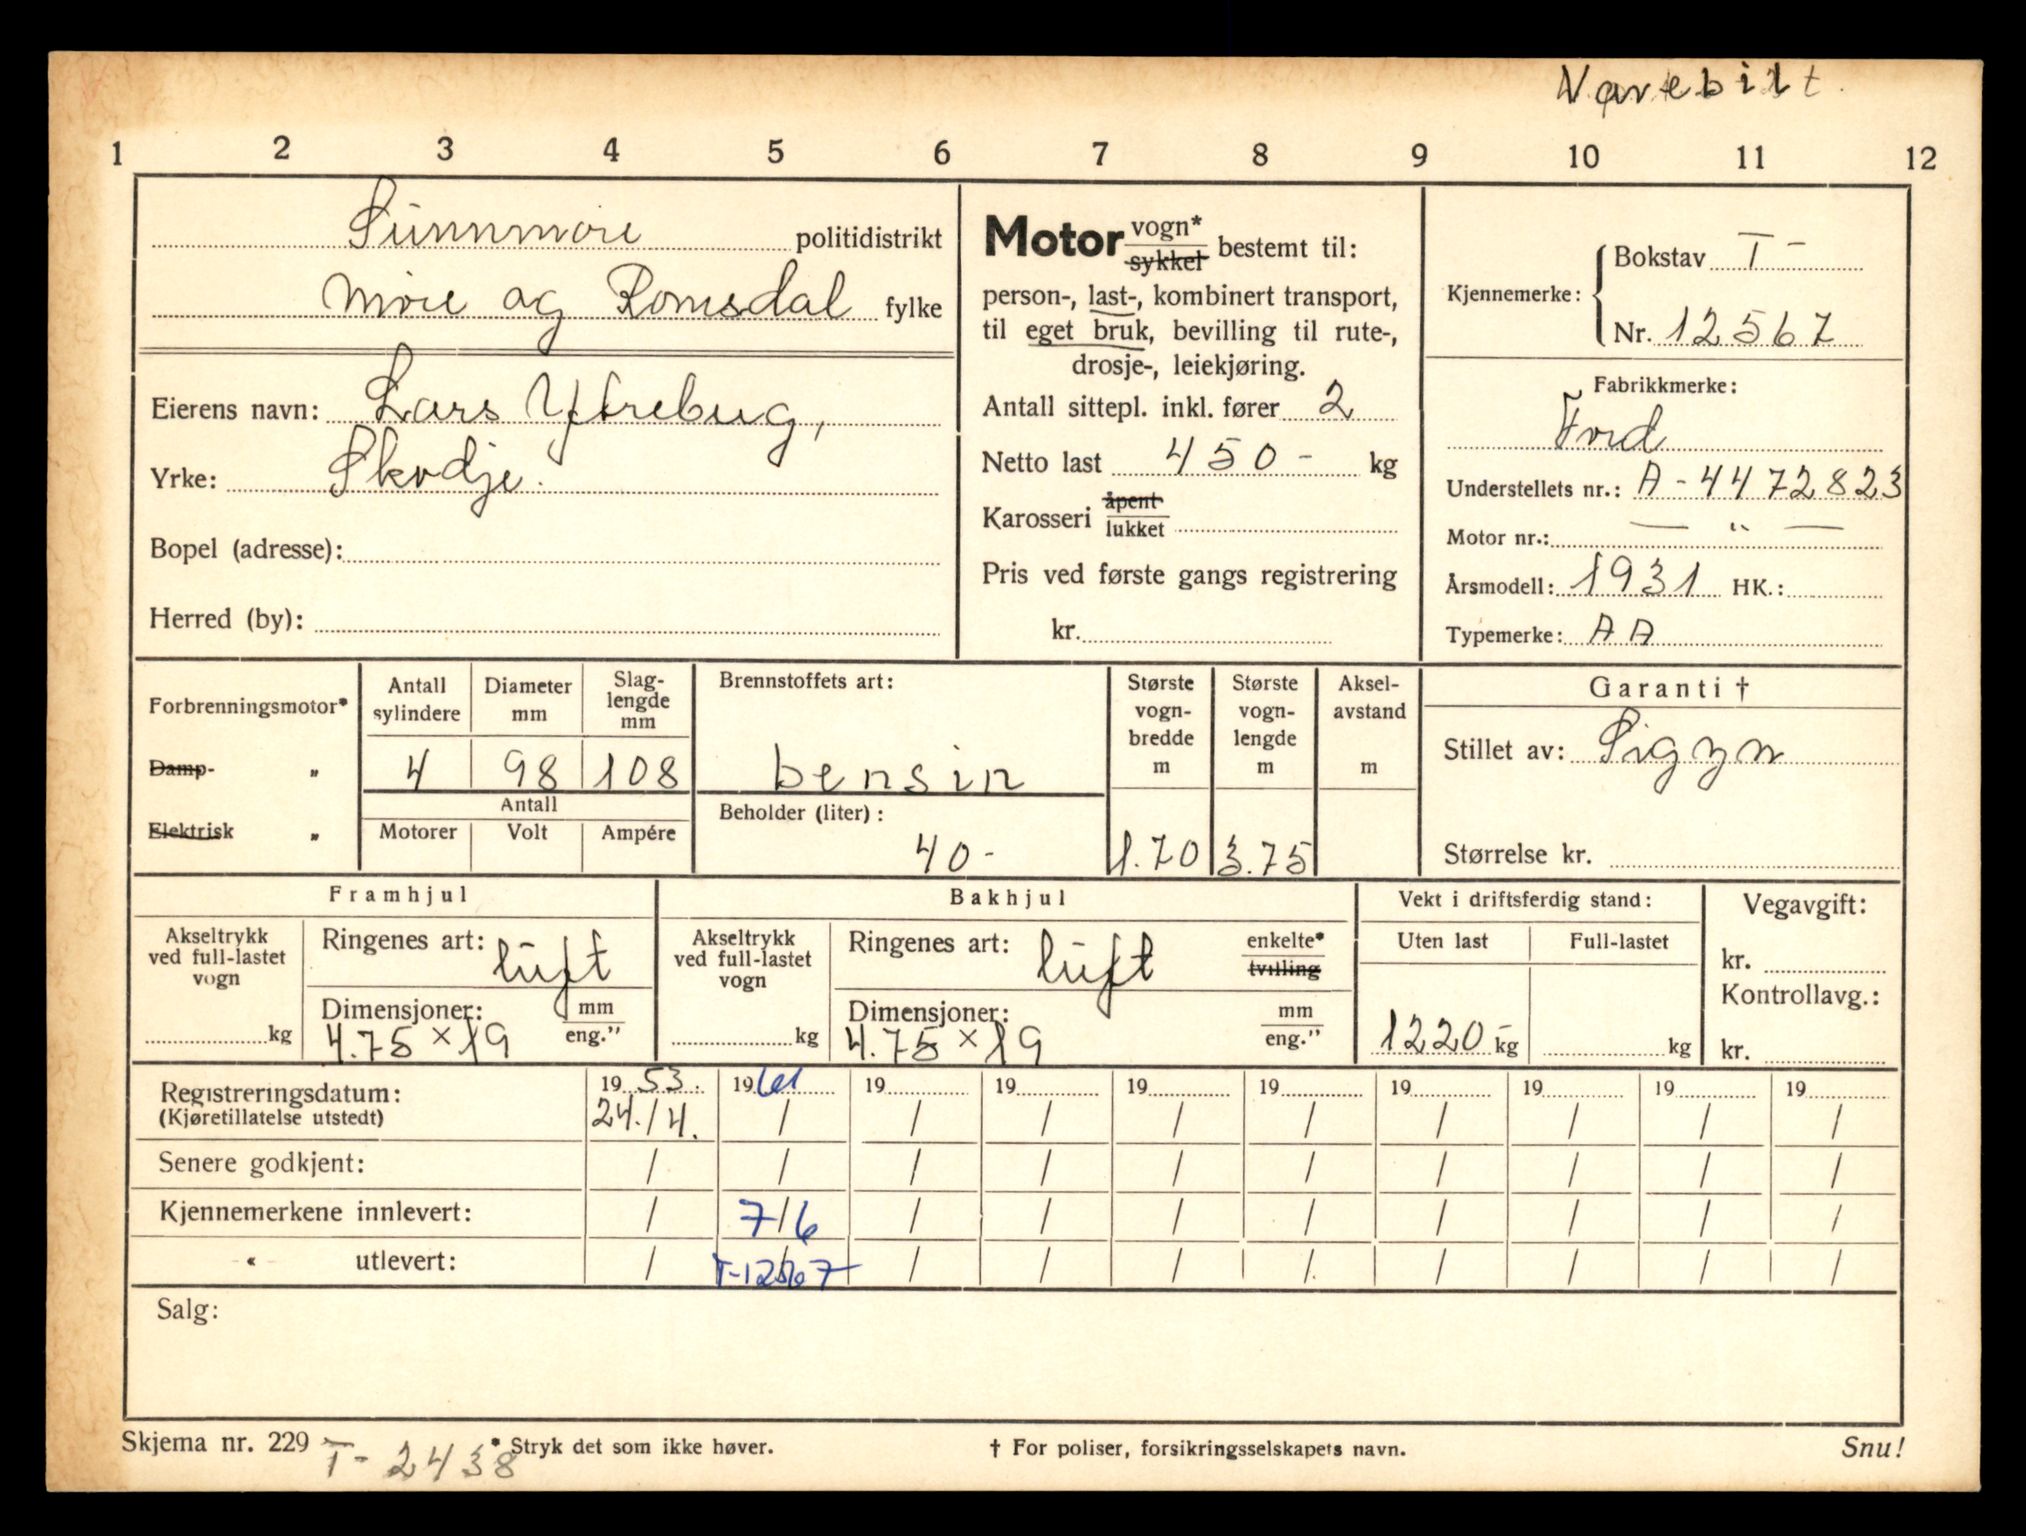 Varebil t.
1 2 3 4 5 6 7 8 9 10 11 12
Sunnmøre politidistrikt
Møre og Romsdal fylke
Eierens navn: Lars Ytrebug,
Yrke: Skodje.
Bopel (adresse):
Herred (by):
Motor vogn* sykkel bestemt til:
person-, last-, kombinert transport,
til eget bruk, bevilling til rute-,
drosje-, leiekjøring.
Antall sittepl. inkl. fører 2
Netto last 450- kg
Karosseri åpent lukket
Pris ved første gangs registrering
kr.
Kjennemerke: Bokstav T-
Nr. 12567
Fabrikkmerke:
Ford
Understellets nr.: A-4472823
Motor nr.: — " —
Årsmodell: 1931 HK.:
Typemerke: AA
Forbrenningsmotor*
Damp- „
Elektrisk „
Antall sylindere
4
Diameter mm
98
Slag-
lengde
mm
108
Antall
Motorer Volt Ampére
Brennstoffets art:
bensin
Beholder (liter):
40-
Største
vogn-
bredde
m
1.70
Største
vogn-
lengde
m
3.75
Aksel-
avstand
m
Garanti †
Stillet av: Sigyn
Størrelse kr.
Framhjul
Akseltrykk
ved full-lastet
vogn
kg
Ringenes art: luft
Dimensjoner: mm eng."
4.75 × 19
Bakhjul
Akseltrykk
ved full-lastet
vogn
kg
Ringenes art: luft enkelte* tvilling
Dimensjoner: mm eng."
4.75 × 19
Vekt i driftsferdig stand:
Uten last Full-lastet
1220- kg kg
Vegavgift:
kr.
Kontrollavg.:
kr.
Registreringsdatum: 19 53. 19 61 19 19 19 19 19 19 19 19
(Kjøretillatelse utstedt) 24./4. / / / / / / / / /
Senere godkjent: / / / / / / / / / /
Kjennemerkene innlevert: / 7/6 / / / / / / / /
« utlevert: / T-12567 / / / / / / / /
Salg:
Skjema nr. 229 * Stryk det som ikke høver. † For poliser, forsikringsselskapets navn. Snu!
T-2438